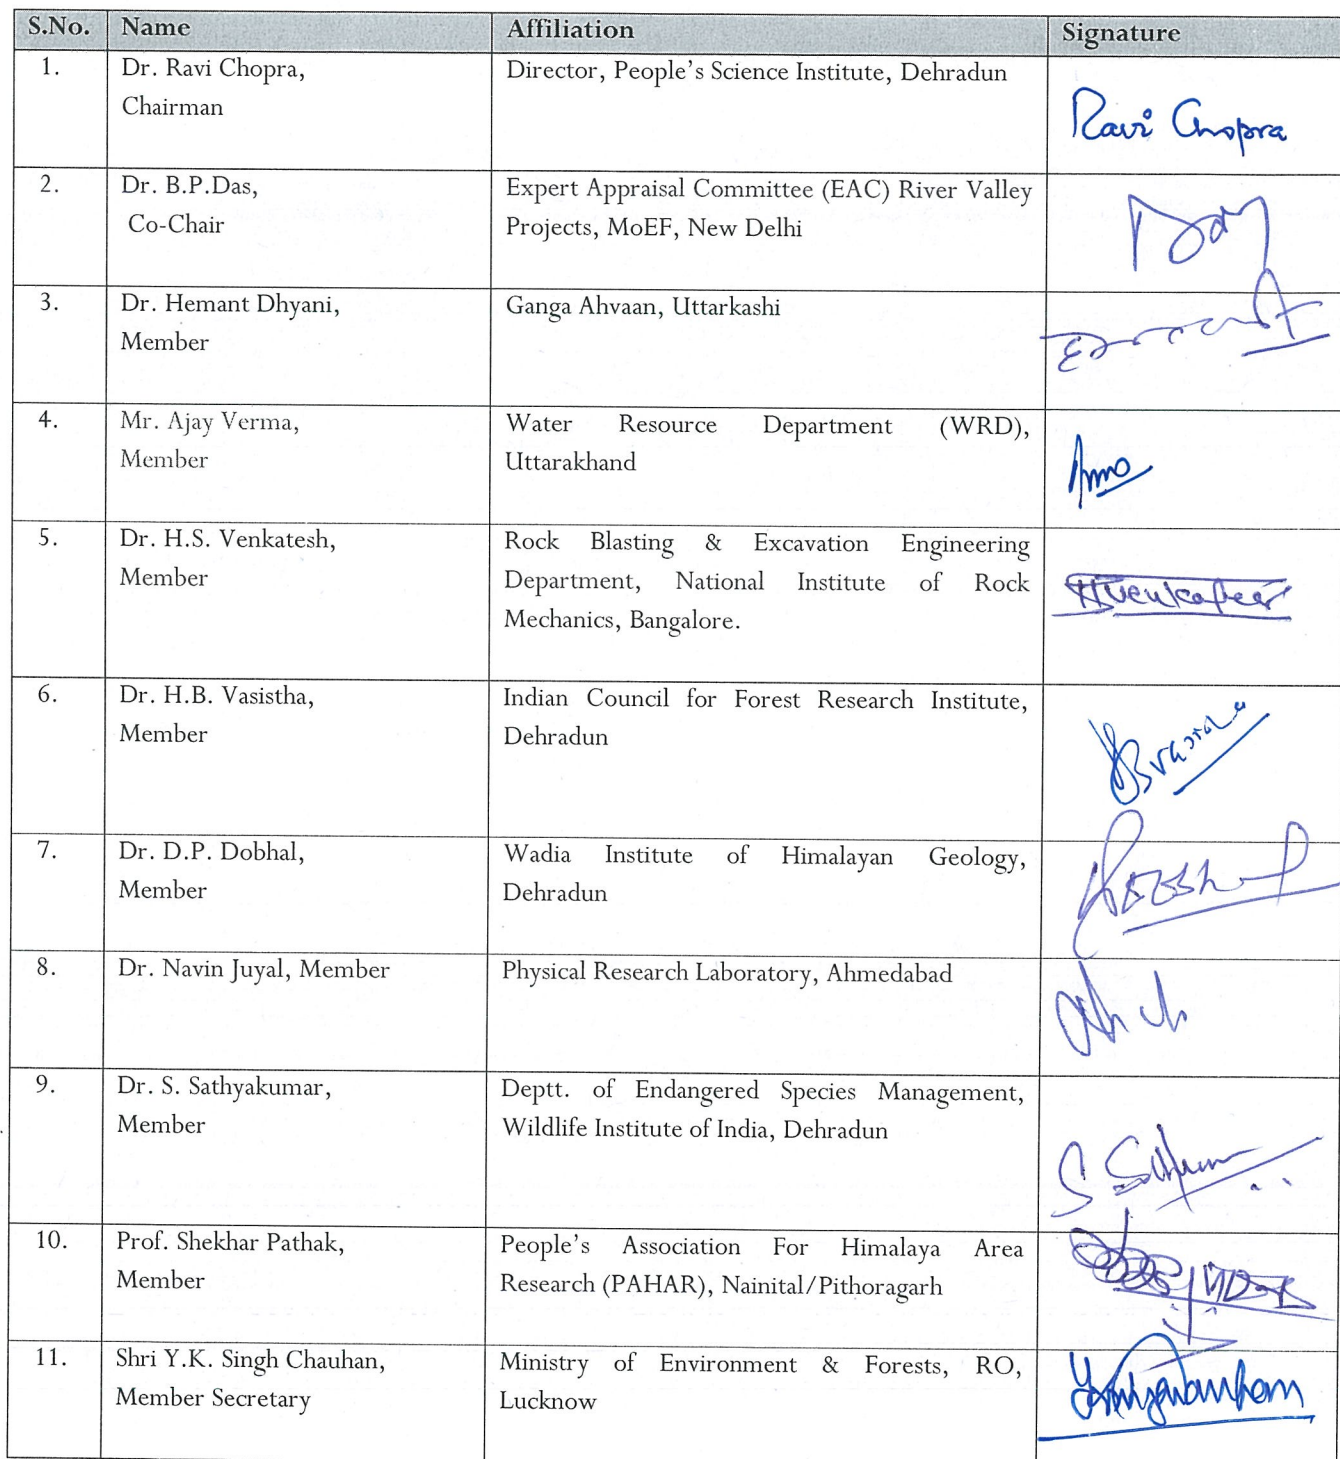 S.No. Name Affiliation Signature
1. Dr. Ravi Chopra, Director, People's Science Institute, Dehradun
Chairman
Ravi Chopra
2. Dr. B.P.Das, Expert Appraisal Committee (EAC) River Valley
Co-Chair Projects, MoEF, New Delhi
3. Dr. Hemant Dhyani, Ganga Ahvaan, Uttarkashi
Member
4. Mr. Ajay Verma, Water Resource Department (WRD),
Member Uttarakhand
5. Dr. H.S. Venkatesh, Rock Blasting & Excavation Engineering
Member Department, National Institute of Rock
Mechanics, Bangalore.
6. Dr. H.B. Vasistha, Indian Council for Forest Research Institute,
Member Dehradun
7. Dr. D.P. Dobhal, Wadia Institute of Himalayan Geology,
Member Dehradun
8. Dr. Navin Juyal, Member Physical Research Laboratory, Ahmedabad
9. Dr. S. Sathyakumar, Deptt. of Endangered Species Management,
Member Wildlife Institute of India, Dehradun
10. Prof. Shekhar Pathak, People's Association For Himalaya Area
Member Research (PAHAR), Nainital/Pithoragarh
11. Shri Y.K. Singh Chauhan, Ministry of Environment & Forests, RO,
Member Secretary Lucknow